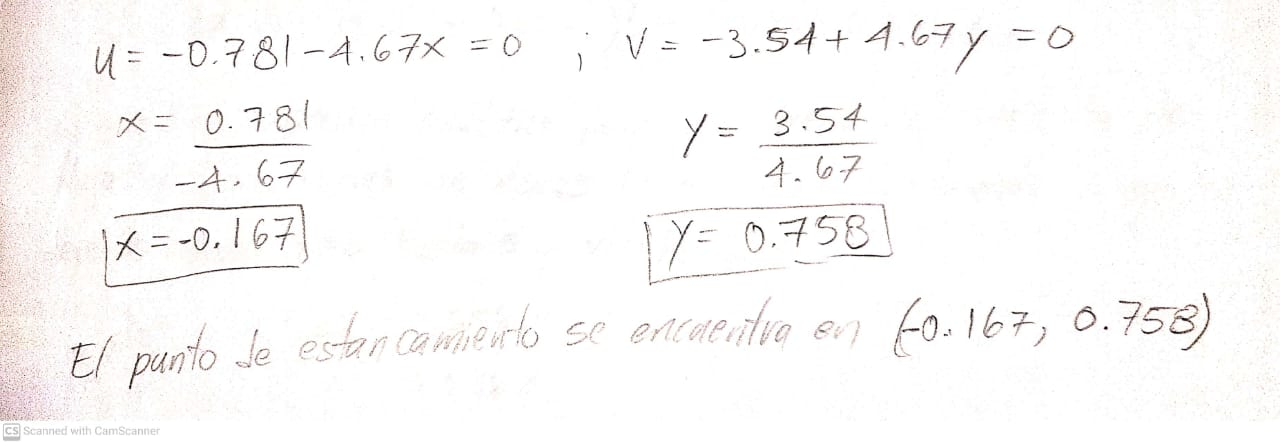 u = -0.781 - 4.67x = 0 ; V = -3.54 + 4.67y = 0
x = 0.781 / -4.67
y = 3.54 / 4.67
x = -0.167
y = 0.758
El punto de estancamiento se encuentra en (-0.167, 0.758)
CS Scanned with CamScanner